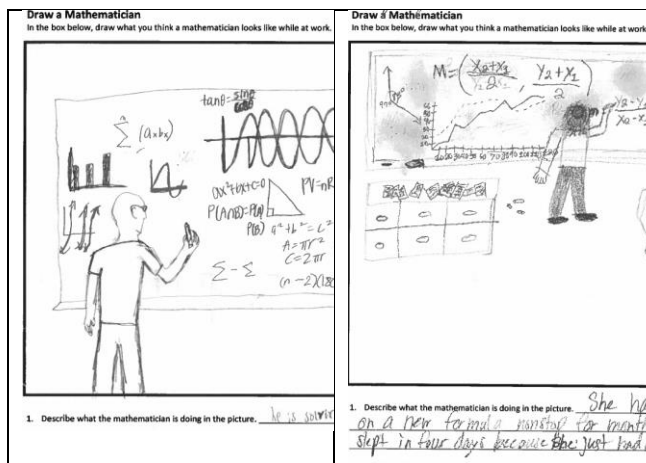 Draw a Mathematician
In the box below, draw what you think a mathematician looks like while at work.
tanθ = sinθ/cosθ
Σ (axbx)
ax²+bx+c=0
PV=nR
P(A∩B)=P(A)
P(B)
a²+b²=c²
A=πr²
C=2πr
Σ-Σ
(n-2)(180
1. Describe what the mathematician is doing in the picture. he is solvin
Draw a Mathematician
In the box below, draw what you think a mathematician looks like while at work
M=
Y₂+Y₁
2
X₂-X₁
1. Describe what the mathematician is doing in the picture. She ha
on a new formula nonstop for month
slept in four days because she just